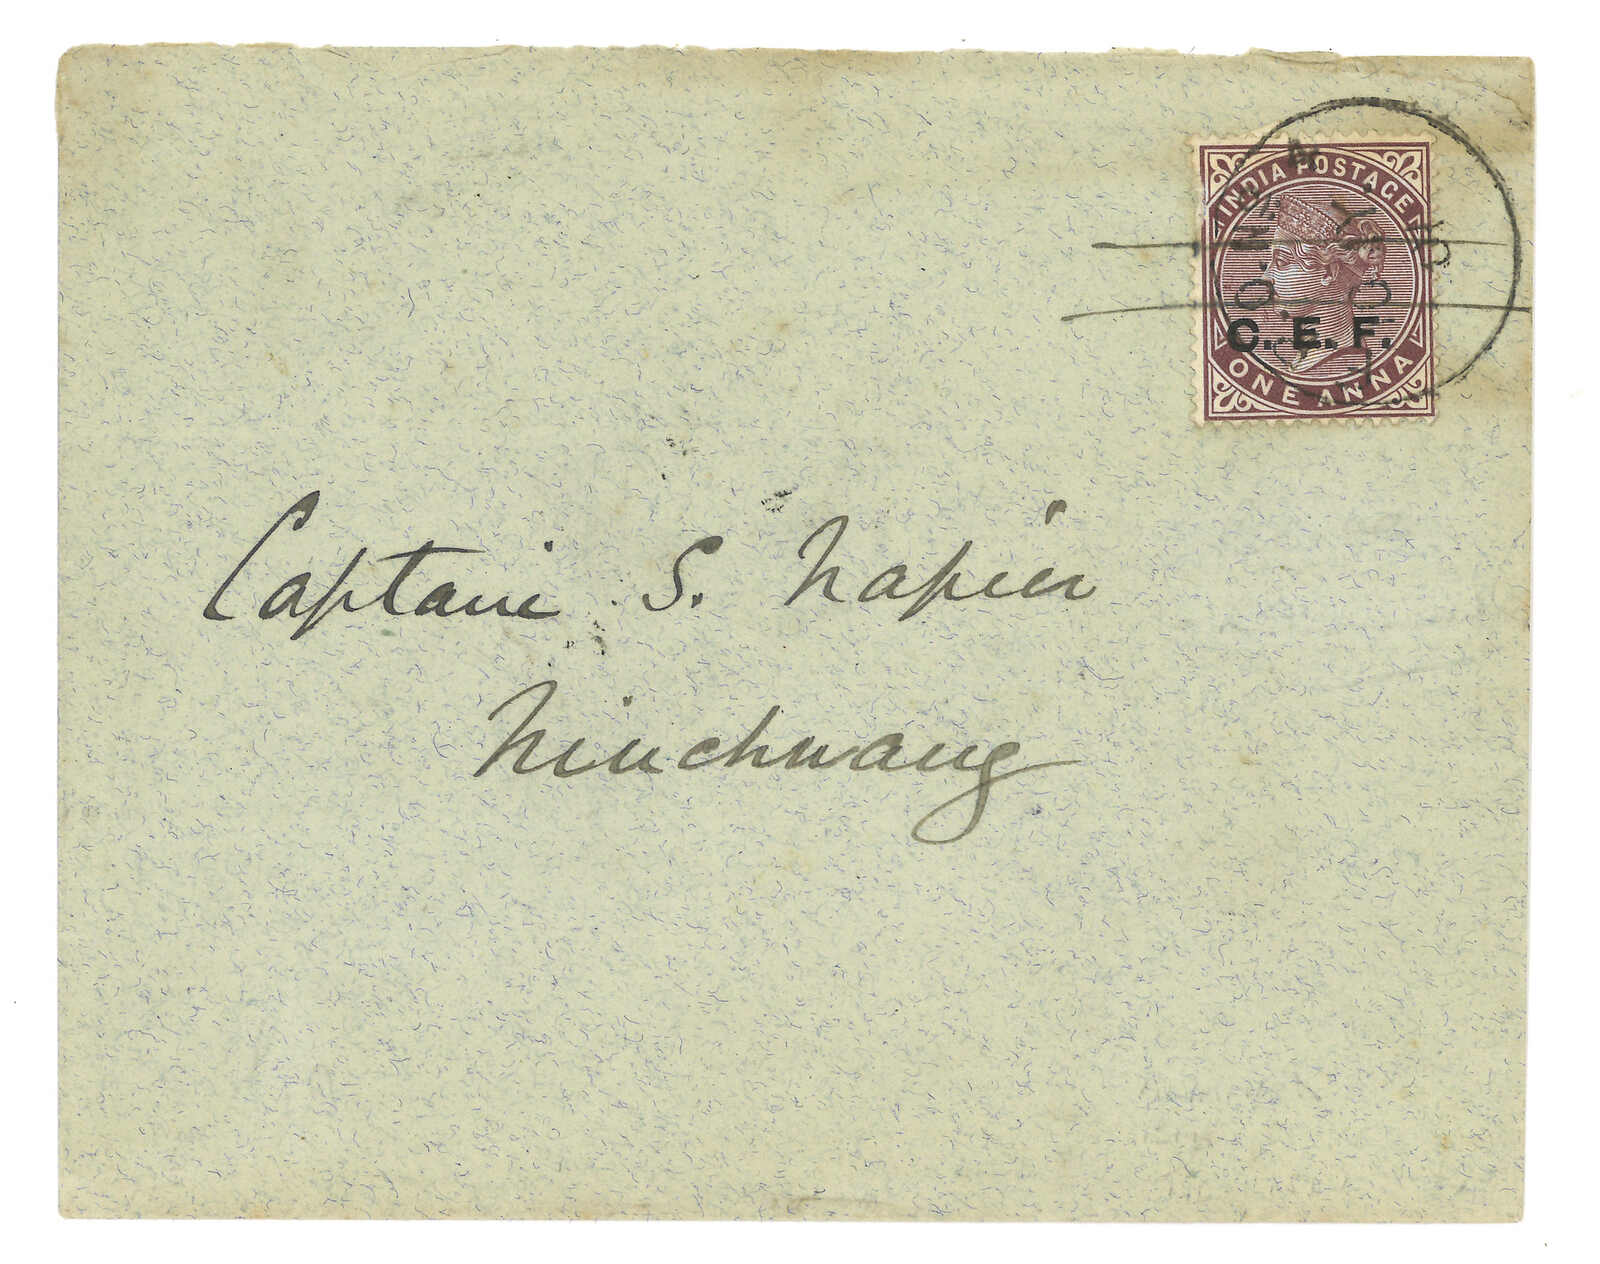 INDIA POSTAGE
C. E. F.
ONE ANNA
Captain S. Napier
Niuchwang